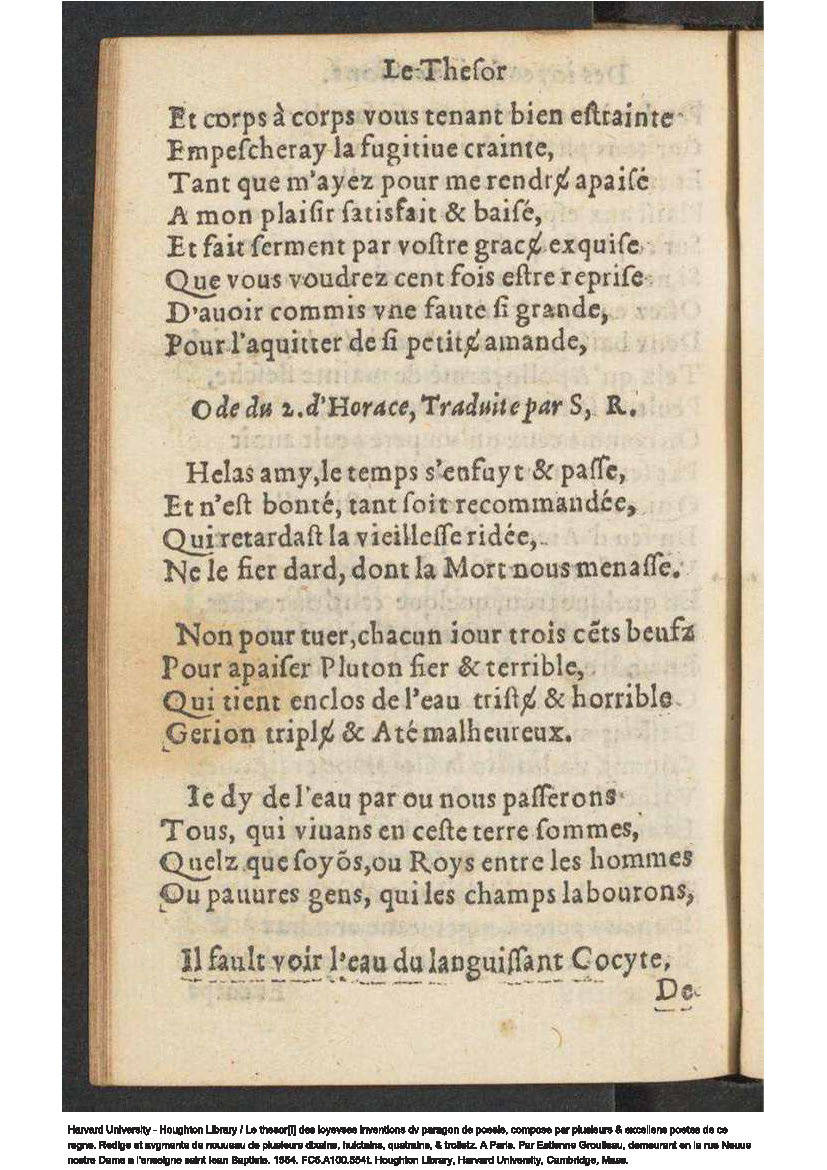 Le Theſor
Et corps à corps vous tenant bien eſtrainte
Empeſcheray la fugitiue crainte,
Tant que m'ayez pour me rendrɇ apaiſé
A mon plaiſir ſatisfait & baiſé,
Et fait ſerment par voſtre gracɇ exquiſe
Que vous voudrez cent fois eſtre repriſe
D'auoir commis vne faute ſi grande,
Pour l'aquitter de ſi petitɇ amande,
Ode du 2. d'Horace, Traduite par S, R.
Helas amy, le temps s'enfuyt & paſſe,
Et n'eſt bonté, tant ſoit recommandée,
Qui retardaſt la vieilleſſe ridée,
Ne le fier dard, dont la Mort nous menaſſe.
Non pour tuer, chacun iour trois cẽts beufz
Pour apaiſer Pluton fier & terrible,
Qui tient enclos de l'eau triſtɇ & horrible
Gerion triplɇ & Até malheureux.
Ie dy de l'eau par ou nous paſſerons
Tous, qui viuans en ceſte terre ſommes,
Quelz que ſoyõs, ou Roys entre les hommes
Ou pauures gens, qui les champs labourons,
Il fault voir l'eau du languiſſant Cocyte,
De
Harvard University - Houghton Library / Le thesor[i] des ioyevses inventions dv paragon de poesie, compose par plusieurs & excellens poetes de ce
regne. Redige et avgmente de nouueau de plusieurs dixains, huictains, quatrains, & trolletz. A Paris. Par Estienne Groulleau, demeurant en la rue Neuue
nostre Dame a l'enseigne saint Iean Baptiste. 1554. FC5.A100.554t. Houghton Library, Harvard University, Cambridge, Mass.